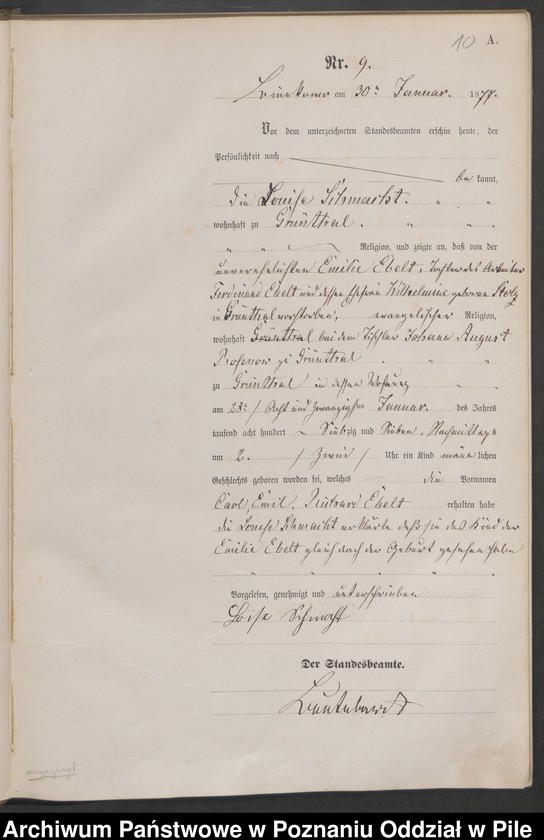 10 A.
Nr. 9.
am 30ten Januar. 1877.
Vor dem unterzeichneten Standesbeamten erschien heute, der
Persönlichkeit nach
be kannt,
die Louise Schmacht.
wohnhaft zu Grünthal.
Religion, und zeigte an, daß von der
unverehelichten Emilie Ebelt, Tochter des Arbeiter
Ferdinand Ebelt und dessen Ehefrau Wilhelmine geborene
in Grünthal verstorben, evangelischer Religion,
wohnhaft Grünthal bei dem Tischler Johann August
zu Grünthal
zu Grünthal in dessen Wohnung
am 28ten / Acht und Zwanzigsten Januar. des Jahres
tausend acht hundert Siebzig und Sieben, Nachmittags
um 2. / Zwei / Uhr ein Kind männlichen
Geschlechts geboren worden sei, welches die Vornamen
Carl, Emil, Ebelt erhalten habe
die Louise Schmacht erklärte daß sie das Kind der
Emilie Ebelt gleich nach der Geburt gesehen habe
Vorgelesen, genehmigt und unterschrieben
Loise Schmacht
Der Standesbeamte.
Archiwum Państwowe w Poznaniu Oddział w Pile